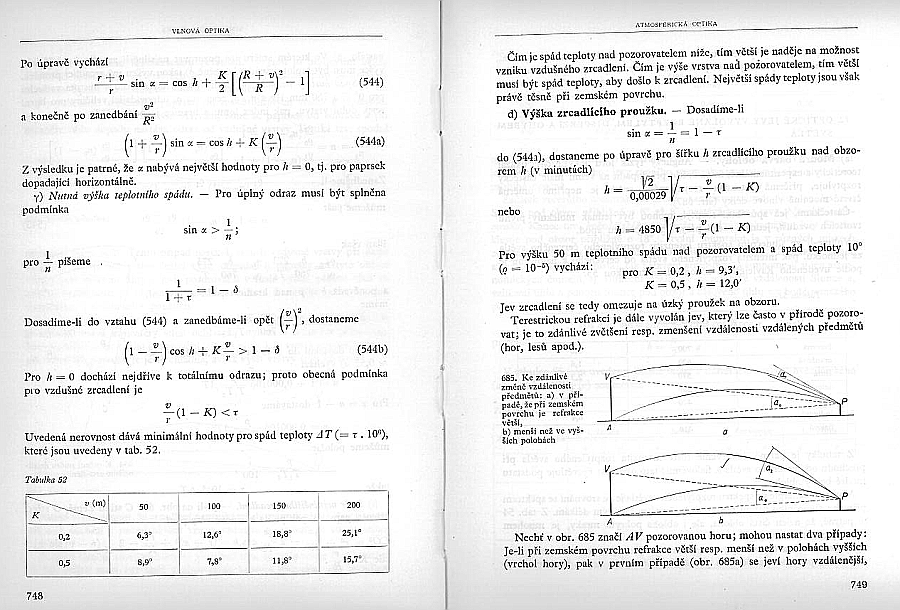 VLNOVÁ OPTIKA
Po úpravě vychází
r + v / r sin α = cos h + K/2 [ ( R + v / R )² − 1 ] (544)
a konečně po zanedbání v²/R²
( 1 + v/r ) sin α = cos h + K ( v/r ) (544a)
Z výsledku je patrné, že α nabývá největší hodnoty pro h = 0, tj. pro paprsek
dopadající horizontálně.
γ) Nutná výška teplotního spádu. — Pro úplný odraz musí být splněna
podmínka
sin α > 1/n ;
pro 1/n píšeme .
1 / 1 + τ = 1 − δ
Dosadíme-li do vztahu (544) a zanedbáme-li opět ( v/r )², dostaneme
( 1 − v/r ) cos h + K v/r > 1 − δ (544b)
Pro h = 0 dochází nejdříve k totálnímu odrazu; proto obecná podmínka
pro vzdušné zrcadlení je
v/r (1 − K) < τ
Uvedená nerovnost dává minimální hodnoty pro spád teploty ΔT (= τ . 10⁶),
které jsou uvedeny v tab. 52.
Tabulka 52
v (m) K 50 100 150 200
0,2 6,3° 12,6° 18,8° 25,1°
0,5 8,9° 7,8° 11,8° 15,7°
748
ATMOSFÉRICKÁ OPTIKA
Čím je spád teploty nad pozorovatelem níže, tím větší je naděje na možnost
vzniku vzdušného zrcadlení. Čím je výše vrstva nad pozorovatelem, tím větší
musí být spád teploty, aby došlo k zrcadlení. Největší spády teploty jsou však
právě těsně při zemském povrchu.
d) Výška zrcadlícího proužku. — Dosadíme-li
sin α = 1/n = 1 − τ
do (544a), dostaneme po úpravě pro šířku h zrcadlícího proužku nad obzo-
rem h (v minutách)
h = √2 / 0,00029 √ τ − v/r (1 − K)
nebo
h = 4850 √ τ − v/r (1 − K)
Pro výšku 50 m teplotního spádu nad pozorovatelem a spád teploty 10°
(ϱ = 10⁻⁵) vychází: pro K = 0,2 , h = 9,3′,
K = 0,5 , h = 12,0′
Jev zrcadlení se tedy omezuje na úzký proužek na obzoru.
Terestrickou refrakcí je dále vyvolán jev, který lze často v přírodě pozoro-
vat; je to zdánlivé zvětšení resp. zmenšení vzdálenosti vzdálených předmětů
(hor, lesů apod.).
685. Ke zdánlivé
změně vzdálenosti
předmětů: a) v pří-
padě, že při zemském
povrchu je refrakce
větší,
b) menší než ve vyš-
ších polohách
V A P a
V A P b
Nechť v obr. 685 značí AV pozorovanou horu; mohou nastat dva případy:
Je-li při zemském povrchu refrakce větší resp. menší než v polohách vyšších
(vrchol hory), pak v prvním případě (obr. 685a) se jeví hory vzdálenější,
749